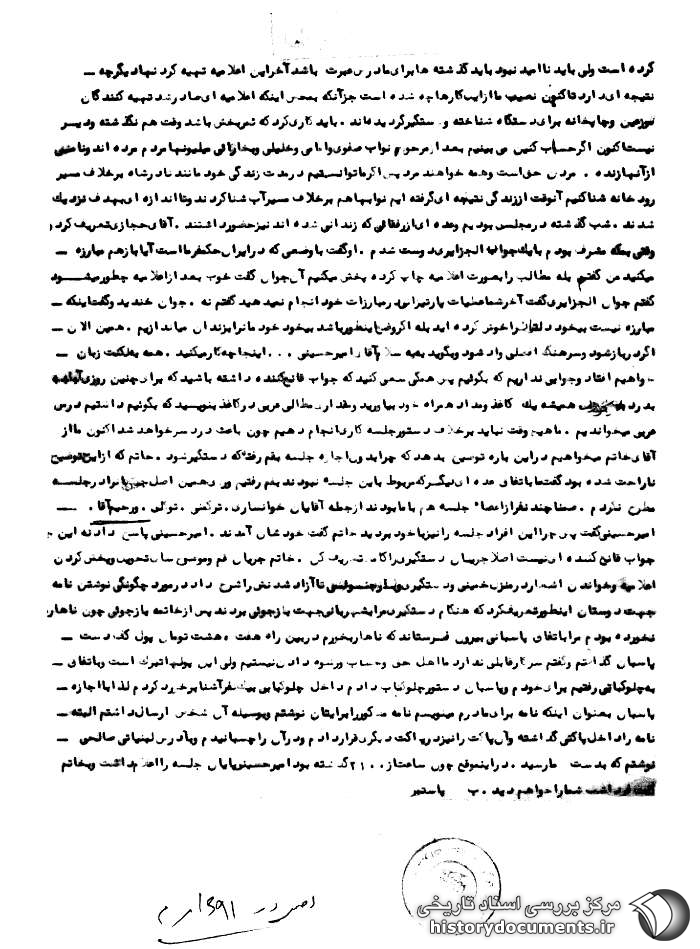 کرده است ولی باید ناامید نبود باید گذشته ها برای ما درس عبرت باشد آخر این اعلامیه تهیه کردنها دیگر چه
نتیجه ای دارد تاکنون نصیب ما از این کارها چه شده است جز آنکه بعد از اینکه اعلامیه ای صادر شد تهیه کنندگان
و چاپخانه برای دستگاه شناخته و دستگیر گردیده اند . باید کاری کرد که ثمربخش باشد وقت هم نگذشته و دیر
نیست تاکنون اگر حساب کنیم می بینیم بعد از مرحوم نواب صفوی و امامی و خلیلی و بخارائی میلیونها مردم مرده اند و
از آنها زنده . مردن حق است و همه خواهند مرد پس اگر ما توانستیم در مدت زندگی خود مانند نادرشاه برخلاف مسیر
رودخانه شنا کنیم آنوقت از زندگی نتیجه ای گرفته ایم نوابها هم برخلاف مسیر آب شنا کردند و تا اندازه ای بهدف نزدیک
شدند . شب گذشته در مجلسی بودیم و عده ای از رفقائی که زندانی شده اند نیز حضور داشتند . آقای حجازی تعریف کرد
وقتی بمکه مشرف بودم با یک جوان الجزایری دوست شدم . او گفت با وضعی که در ایران حکمفرما است آیا باز هم مبارزه
میکنید من گفتم بله مطالب را بصورت اعلامیه چاپ کرده پخش میکنیم آن جوان گفت خوب بعد از اعلامیه چطور میشود
گفتم جوان الجزایری گفت آخر شما عملیات پارتیزانی در مبارزات خود انجام نمیدهید گفتم نه . جوان خندید و گفت اینکه
مبارزه نیست بیخود دلتان را خوش کرده اید بله اگر وضع اینطور باشد بیخود خودمان را بزندان میاندازیم . همین الان
اگر در باز شود و سرهنگ افضلی وارد شود و بگوید به به سلام آقای امیرحسینی ... اینجا چه کار میکنید . همه به لکنت زبان
خواهیم افتاد و جوابی نداریم که بگوئیم پس همگی سعی کنید که جواب قانع کننده داشته باشید که برای چنین روزی آماده
بدرد همیشه یک کاغذ و مداد همراه خود بیاورید و مقداری مطالب عربی در کاغذ بنویسید که بگوئیم داشتیم درس
عربی میخواندیم . ما هیچوقت نباید برخلاف دستور جلسه کاری انجام دهیم چون باعث دردسر خواهد شد اکنون ما از
آقای خاتم میخواهیم در این باره توضیح بدهد که چرا بدون اجازه جلسه بقم رفته که دستگیر شود . خاتم که از این توضیح
ناراحت شده بود گفت ما باتفاق عده ای دیگر که مربوط باین جلسه نبودند بقم رفتیم و روی همین اصل جریان را در جلسه
مطرح نکردم . ضمنا چند نفر از اعضاء جلسه هم با ما بودند از جمله آقایان خوانساری ، ترکمنی ، توکلی ، و رحیم آقا .
امیرحسینی گفت پس چرا این افراد جلسه را نیز با خود بردید خاتم گفت خودشان آمدند . امیرحسینی پاسخ داد نه این
جواب قانع کننده ای نیست اصلا جریان دستگیری را کاملا تعریف کن . خاتم جریان قم و موسی سان تحویل و پخش کردن
اعلامیه و خواندن اشعار در منزل خمینی و دستگیری تا آزاد شدنش را شرح داد در مورد چگونگی نوشتن نامه
جهت دوستان اینطور تعریف کرد که هنگام دستگیری مرا بشهربانی جهت بازجوئی بردند پس از خاتمه بازجوئی چون ناهار
نخورده بودم مرا باتفاق پاسبانی بیرون فرستاند که ناهار بخورم در بین راه هفت هشت تومان پول کف دست
پاسبان گذاشتم و گفتم سرکار قابلی ندارد ما اهل حق و حساب و رشوه دادن نیستیم ولی این پولها تبرک است و باتفاق
به چلوکبابی رفتیم برای خودم و پاسبان دستور چلوکباب دادم داخل چلوکبابی بیک نفر آشنا برخورد کردم لذا با اجازه
پاسبان بعنوان اینکه نامه برای مادرم مینویسم نامه مذکور را برایتان نوشتم و بوسیله آن شخص ارسال داشتم البته
نامه را داخل پاکتی گذاشته و آن پاکت را نیز در پاکت دیگری قرار دادم و در آن را چسبانیدم و بآدرس لبنیاتی صالحی
نوشتم که بدست ما رسید . در اینموقع چون ساعت از ۲۱۰۰ گذشته بود امیرحسینی پایان جلسه را اعلام داشت و بخاتم
گفت فردا شب شما را خواهم دید . پ
مرکز بررسی اسناد تاریخی
historydocuments.ir